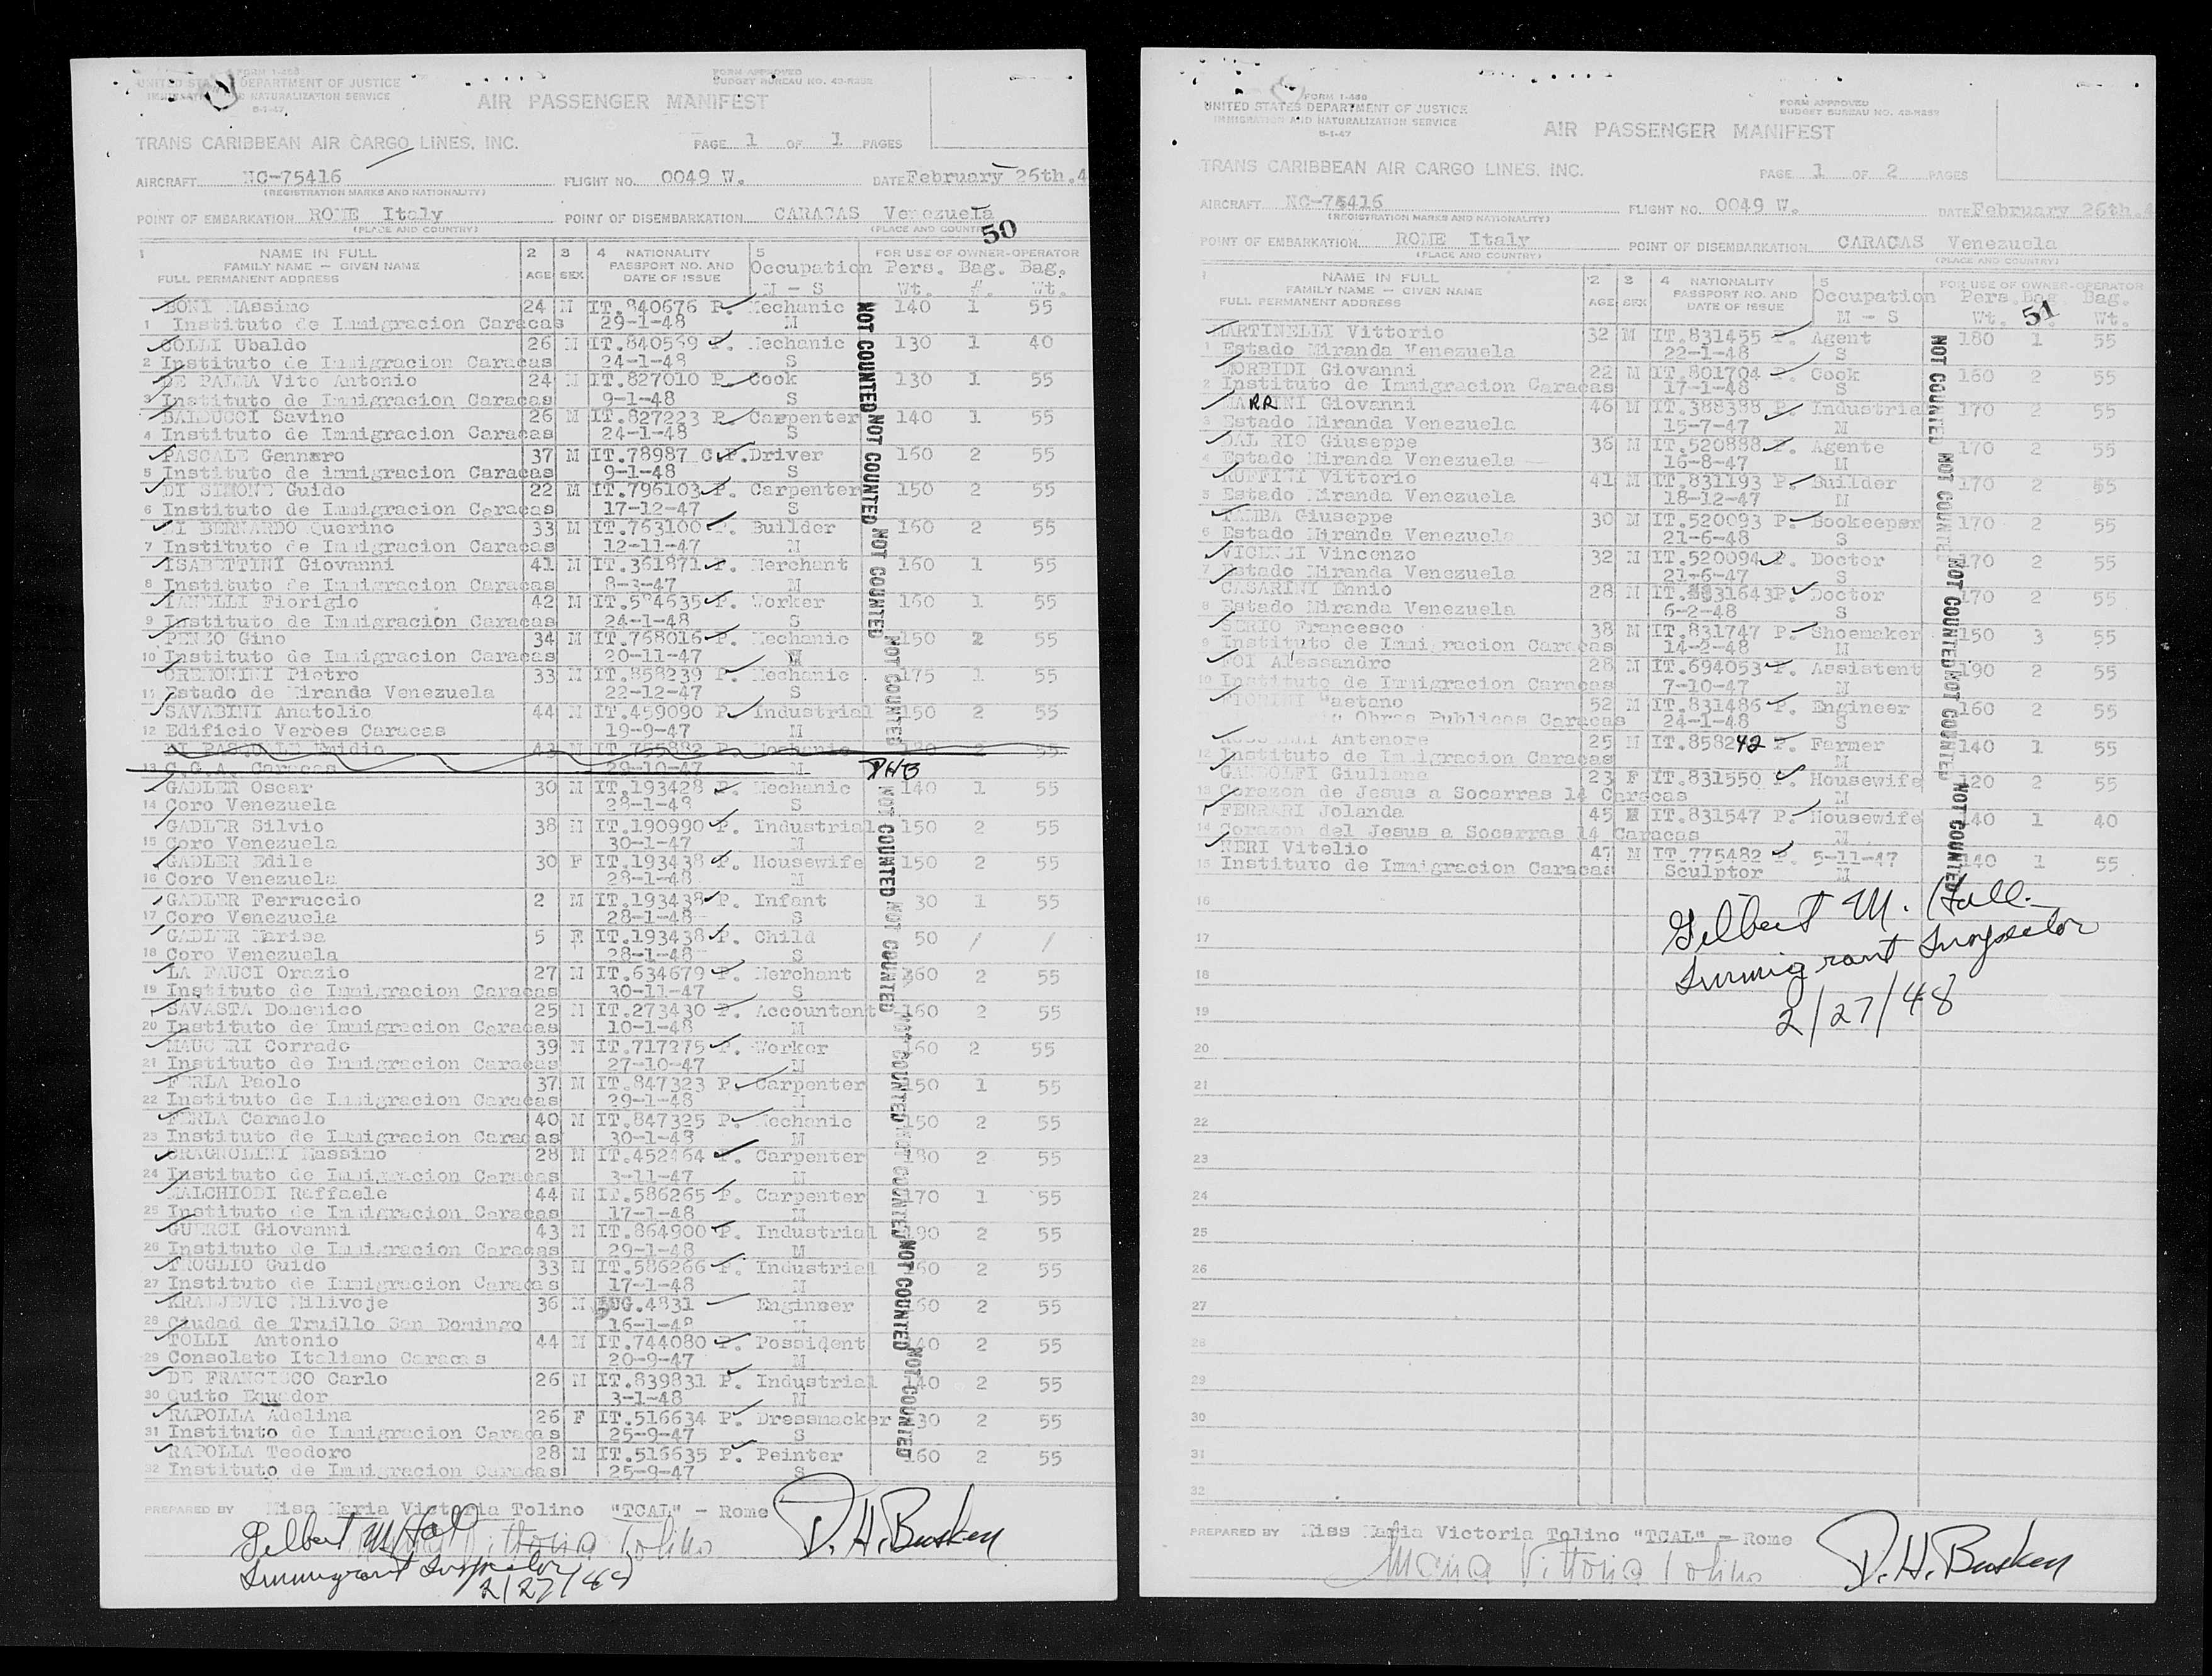 FORM I-466
UNITED STATES DEPARTMENT OF JUSTICE
IMMIGRATION AND NATURALIZATION SERVICE
8-1-47
FORM APPROVED
BUDGET BUREAU NO.
AIR PASSENGER MANIFEST
TRANS CARIBBEAN AIR CARGO LINES, INC.
PAGE 1 OF 1 PAGES
AIRCRAFT NC-75416 FLIGHT NO. 0049 W. DATE February 26th.4
(REGISTRATION MARKS AND NATIONALITY)
POINT OF EMBARKATION ROME Italy POINT OF DISEMBARKATION CARACAS Venezuela
(PLACE AND COUNTRY) (PLACE AND COUNTRY)
50
1 NAME IN FULL 2 3 4 NATIONALITY 5 FOR USE OF OWNER-OPERATOR
FAMILY NAME — GIVEN NAME AGE SEX PASSPORT NO. AND Occupation Pers. Bag. Bag.
FULL PERMANENT ADDRESS DATE OF ISSUE M - S Wt. #. Wt.
BONI Massimo 24 M IT.840676 P. Mechanic 140 1 55
1 Instituto de Inmigracion Caracas 29-1-48 M
COLLI Ubaldo 26 M IT.840559 P. Mechanic 130 1 40
2 Instituto de Inmigracion Caracas 24-1-48 S
DE PALMA Vito Antonio 24 M IT.827010 P. Cook 130 1 55
3 Instituto de Inmigracion Caracas 9-1-48 S
BALDUCCI Savino 26 M IT.827223 P. Carpenter 140 1 55
4 Instituto de Inmigracion Caracas 24-1-48 S
PASCALE Gennaro 37 M IT.78987 C.P. Driver 160 2 55
5 Instituto de inmigracion Caracas 9-1-48 S
DI SIMONE Guido 22 M IT.796103 P. Carpenter 150 2 55
6 Instituto de Inmigracion Caracas 17-12-47 S
DI BERNARDO Querino 33 M IT.763100 P. Builder 160 2 55
7 Instituto de Inmigracion Caracas 12-11-47 M
ISABETTINI Giovanni 41 M IT.361871 P. Merchant 160 1 55
8 Instituto de Inmigracion Caracas 8-3-47 M
IANELLI Fiorigio 42 M P. Worker 160 1 55
9 Instituto de Inmigracion Caracas 24-1-48 S
PENZO Gino 34 M IT.768016 P. Mechanic 150 2 55
10 Instituto de Inmigracion Caracas 20-11-47 M
CREMONINI Pietro 33 M IT.858239 P. Mechanic 175 1 55
11 Estado de Miranda Venezuela 22-12-47 S
SAVABINI Anatolio 44 M IT.459090 P. Industrial 150 2 55
12 Edificio Veroes Caracas 19-9-47 M
Emidio 43 M Mechanic 2 55
13 C.G.A. Caracas 29-10-47 M DHB
GADLER Oscar 30 M IT.193428 P. Mechanic 140 1 55
14 Coro Venezuela 28-1-48 S
GADLER Silvio 38 M IT.190990 P. Industrial 150 2 55
15 Coro Venezuela 30-1-47 M
GADLER Edile 30 F IT.193438 P. Housewife 150 2 55
16 Coro Venezuela 28-1-48 M
GADLER Ferruccio 2 M IT.193438 P. Infant 30 1 55
17 Coro Venezuela 28-1-48 S
GADLER Marisa 5 F IT.193438 P. Child 50 / /
18 Coro Venezuela 28-1-48 S
LA FAUCI Orazio 27 M IT.634679 P. Merchant 160 2 55
19 Instituto de Inmigracion Caracas 30-11-47 S
SAVASTA Domenico 25 M IT.273430 P. Accountant 160 2 55
20 Instituto de Inmigracion Caracas 10-1-48 M
MAUGERI Corrado 39 M IT.717275 P. Worker 160 2 55
21 Instituto de Inmigracion Caracas 27-10-47 M
FERLA Paolo 37 M IT.847323 P. Carpenter 150 1 55
22 Instituto de Inmigracion Caracas 29-1-48 M
FERLA Carmelo 40 M IT.847325 P. Mechanic 150 2 55
23 Instituto de Inmigracion Caracas 30-1-48 M
GRAGNOLINI Massimo 28 M IT.452464 P. Carpenter 180 2 55
24 Instituto de Inmigracion Caracas 3-11-47 M
MALCHIODI Raffaele 44 M IT.586265 P. Carpenter 170 1 55
25 Instituto de Inmigracion Caracas 17-1-48 M
GUERCI Giovanni 43 M IT.864900 P. Industrial 190 2 55
26 Instituto de Inmigracion Caracas 29-1-48 M
FROGLIO Guido 33 M IT.586266 P. Industrial 160 2 55
27 Instituto de Inmigracion Caracas 17-1-48 M
KRALJEVIC Milivoje 36 M JUG.4831 Engineer 160 2 55
28 Ciudad de Trujllo San Domingo 16-1-48 M
TOLLI Antonio 44 M IT.744080 P. Possident 140 2 55
29 Consolato Italiano Caracas 20-9-47 M
DE FRANCISCO Carlo 26 M IT.839831 P. Industrial 140 2 55
30 Quito Equador 3-1-48 M
RAPOLLA Adelina 26 F IT.516634 P. Dressmacker 130 2 55
31 Instituto de Inmigracion Caracas 25-9-47 S
RAPOLLA Teodoro 28 M IT.516635 P. Peinter 160 2 55
32 Instituto de Inmigracion Caracas 25-9-47 S
NOT COUNTED NOT COUNTED NOT COUNTED NOT COUNTED NOT COUNTED NOT COUNTED NOT COUNTED NOT COUNTED NOT COUNTED NOT COUNTED
PREPARED BY Miss Maria Victoria Tolino "TCAL" - Rome
Maria Vittoria Tolino
Gilbert M Hall
Immigrant Inspector
2/27/48
D. H. Busken
FORM I-466
UNITED STATES DEPARTMENT OF JUSTICE
IMMIGRATION AND NATURALIZATION SERVICE
8-1-47
FORM APPROVED
BUDGET BUREAU NO.
AIR PASSENGER MANIFEST
TRANS CARIBBEAN AIR CARGO LINES, INC.
PAGE 1 OF 2 PAGES
AIRCRAFT NC-75416 FLIGHT NO. 0049 W. DATE February 26th.4
(REGISTRATION MARKS AND NATIONALITY)
POINT OF EMBARKATION ROME Italy POINT OF DISEMBARKATION CARACAS Venezuela
(PLACE AND COUNTRY) (PLACE AND COUNTRY)
1 NAME IN FULL 2 3 4 NATIONALITY 5 FOR USE OF OWNER-OPERATOR
FAMILY NAME — GIVEN NAME AGE SEX PASSPORT NO. AND Occupation Pers. Bag. Bag.
FULL PERMANENT ADDRESS DATE OF ISSUE M - S Wt. 51 Wt.
MARTINELLI Vittorio 32 M IT.831455 P. Agent 180 1 55
1 Estado Miranda Venezuela 22-1-48 S
MORBIDI Giovanni 22 M IT.801704 P. Cook 160 2 55
2 Instituto de Inmigracion Caracas 17-1-48 S
MARRINI Giovanni 46 M IT.388388 P. Industrial 170 2 55
3 Estado Miranda Venezuela 15-7-47 M
DAL RIO Giuseppe 36 M IT.520888 P. Agente 170 2 55
4 Estado Miranda Venezuela 16-8-47 M
RUFFINI Vittorio 41 M IT.831193 P. Builder 170 2 55
5 Estado Miranda Venezuela 18-12-47 M
Giuseppe 30 M IT.520093 P. Bookeeper 170 2 55
6 Estado Miranda Venezuela 21-6-48 S
Vincenzo 32 M IT.520094 P. Doctor 170 2 55
7 Estado Miranda Venezuela 21-6-47 S
CASARINI Ennio 28 M P. Doctor 170 2 55
8 Estado Miranda Venezuela 6-2-48 S
SERIO Francesco 38 M IT.831747 P. Shoemaker 150 3 55
9 Instituto de Inmigracion Caracas 14-2-48 M
FOI Alessandro 28 M IT.694053 P. Assistent 190 2 55
10 Instituto de Inmigracion Caracas 7-10-47 M
FIORINI Gaetano 52 M IT.831486 P. Engineer 160 2 55
Obras Publicas Caracas 24-1-48 S
Antenore 25 M IT.858242 P. Farmer 140 1 55
12 Instituto de Inmigracion Caracas M
GANDOLFI Giuliana 23 F IT.831550 Housewife 120 2 55
13 Corazon de Jesus a Socarras 14 Caracas M
FERRARI Jolanda 45 IT.831547 P. Housewife 140 1 40
14 Corazon del Jesus a Socarras 14 Caracas M
NERI Vitelio 47 M IT.775482 P. 5-11-47 140 1 55
15 Instituto de Inmigracion Caracas Sculptor M
NOT COUNTED NOT COUNTED NOT COUNTED NOT COUNTED NOT COUNTED
16
17
18
19
20
21
22
23
24
25
26
27
28
29
30
31
32
Gilbert M. Hall
Immigrant Inspector
2/27/48
PREPARED BY Miss Maria Victoria Tolino "TCAL" - Rome
Maria Vittoria Tolino
D. H. Busken